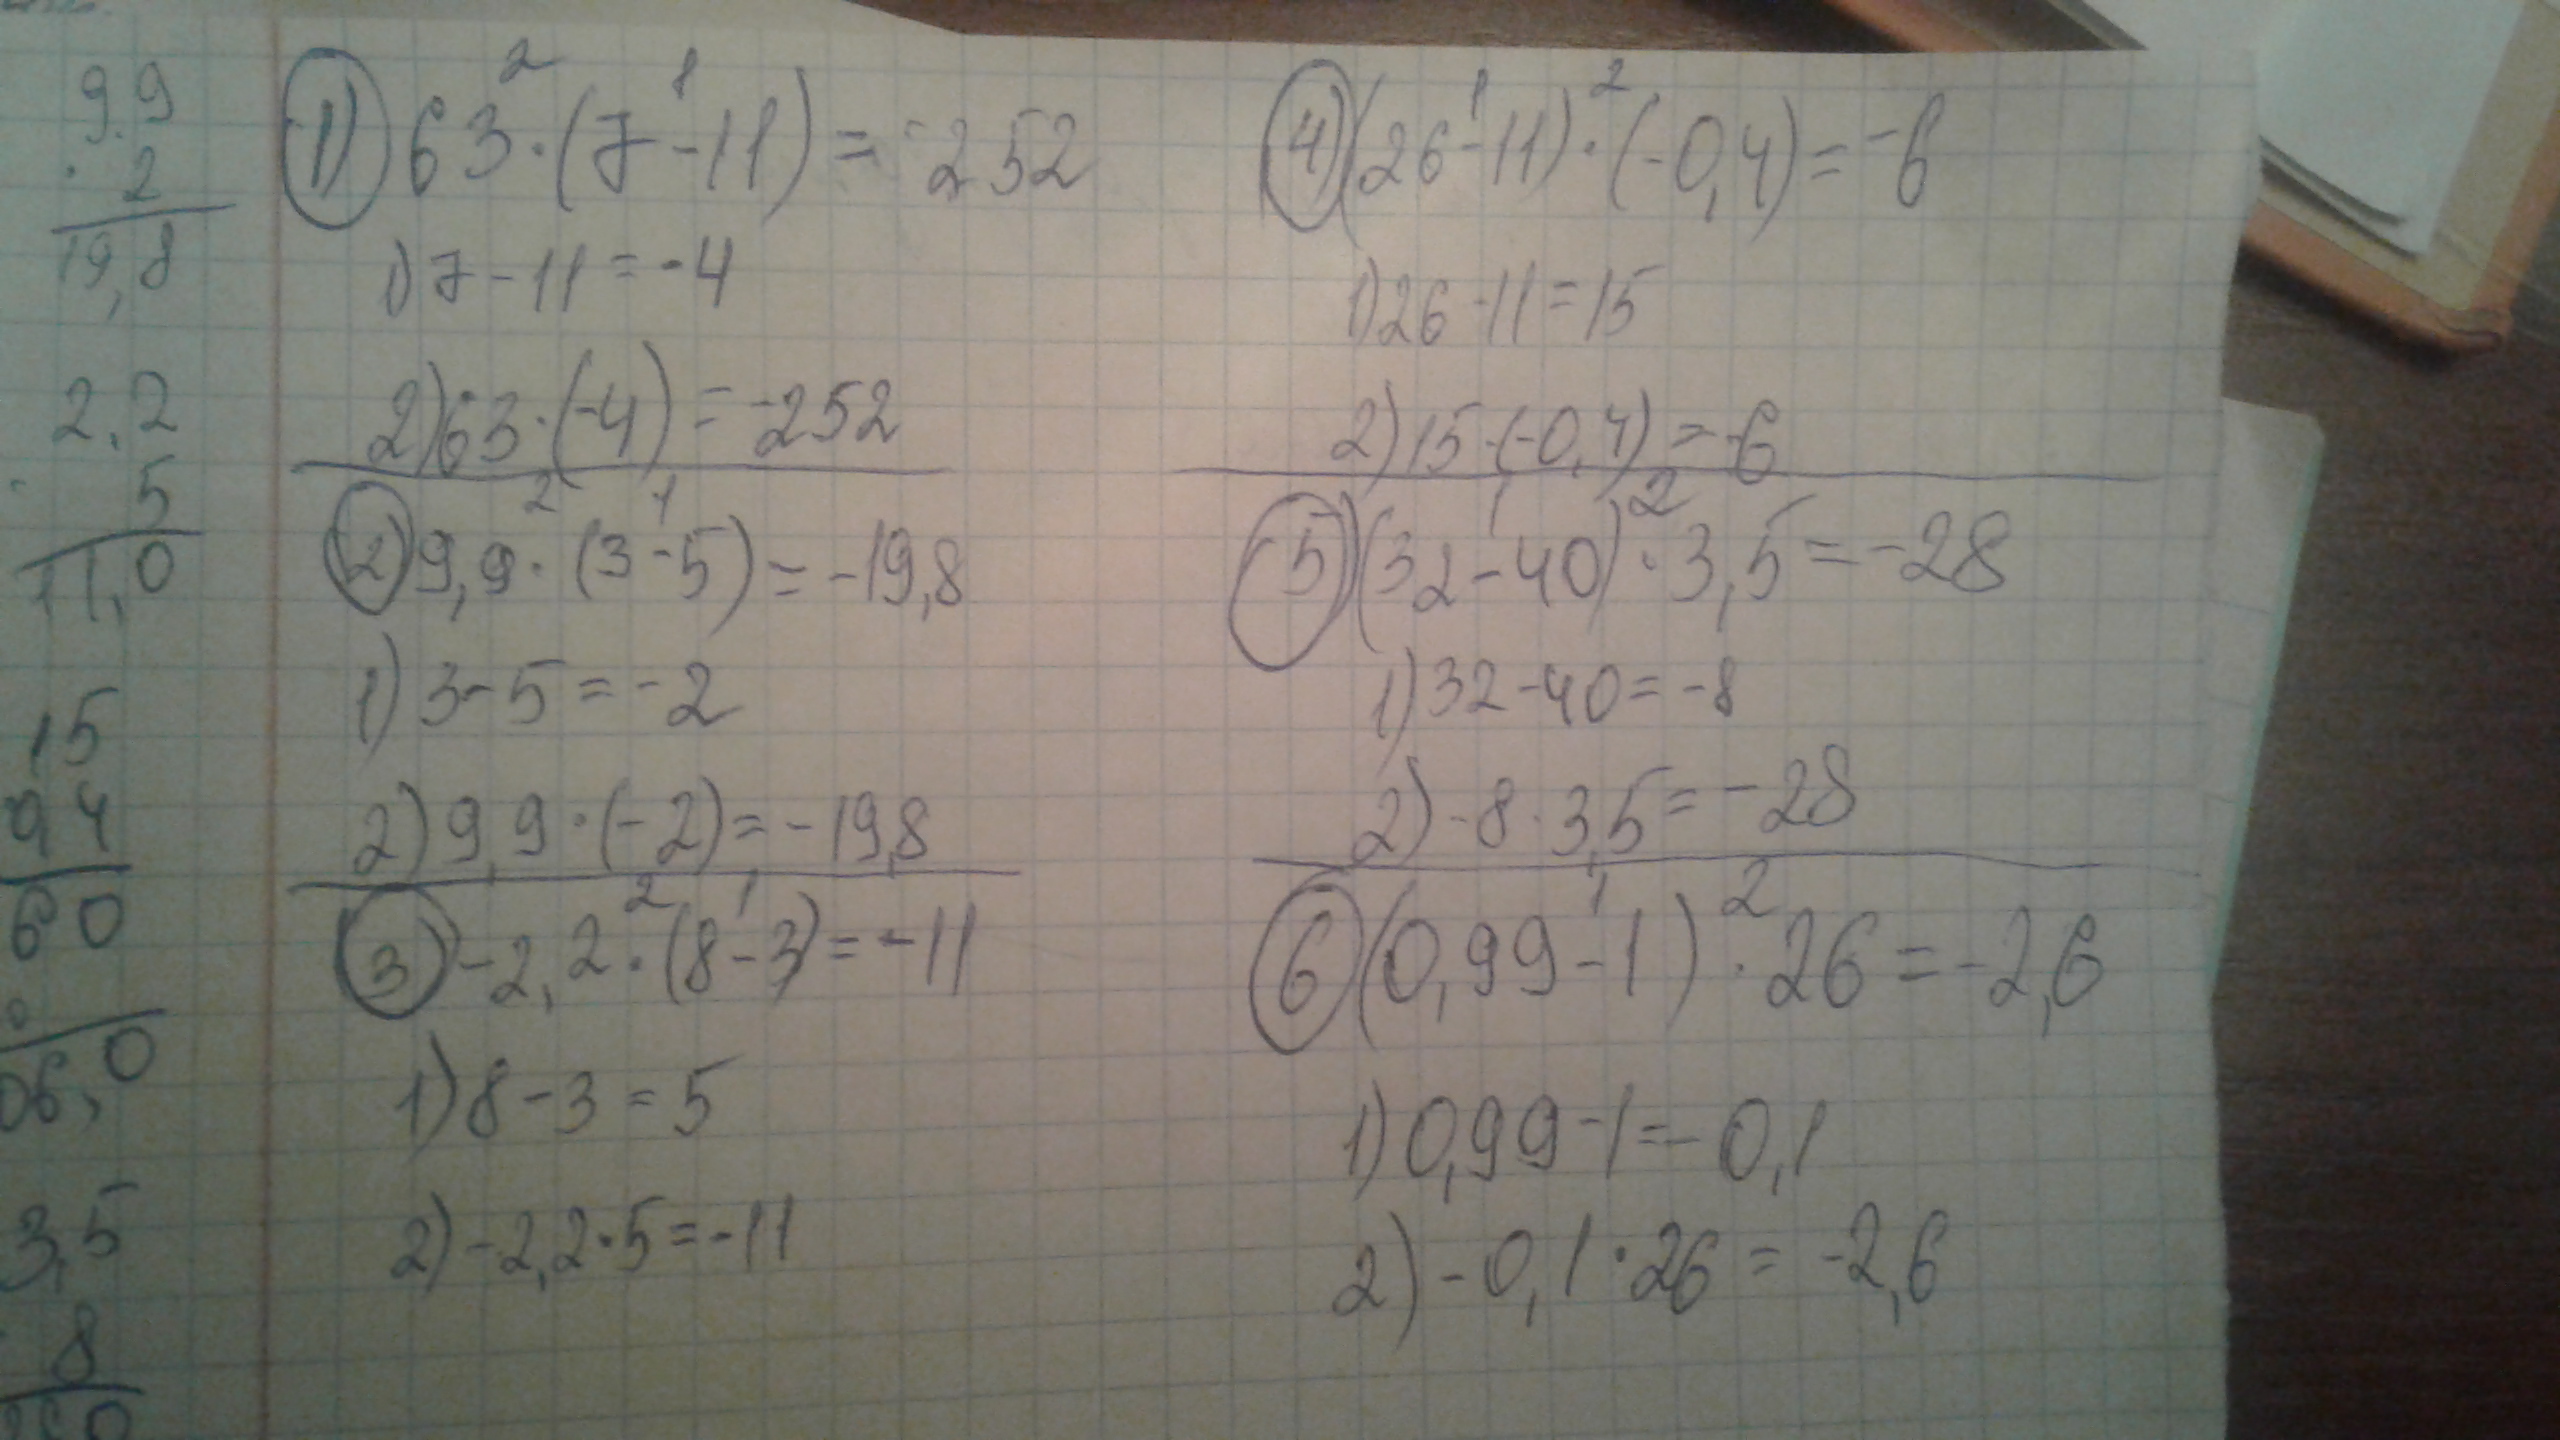 9.9
· 2
19,8
2,2
· 5
11,0
15
0 4
60
0
06,0
3,5
· 8
1) 63 · (7 - 11) = -252
1) 7 - 11 = -4
2) 63 · (-4) = -252
2) 9,9 · (3 - 5) = -19,8
1) 3 - 5 = -2
2) 9,9 · (-2) = -19,8
3) -2,2 · (8 - 3) = -11
1) 8 - 3 = 5
2) -2,2 · 5 = -11
4) (26 - 11) · (-0,4) = -6
1) 26 - 11 = 15
2) 15 · (-0,4) = -6
5) (32 - 40) · 3,5 = -28
1) 32 - 40 = -8
2) -8 · 3,5 = -28
6) (0,99 - 1) · 26 = -2,6
1) 0,99 - 1 = -0,1
2) -0,1 · 26 = -2,6